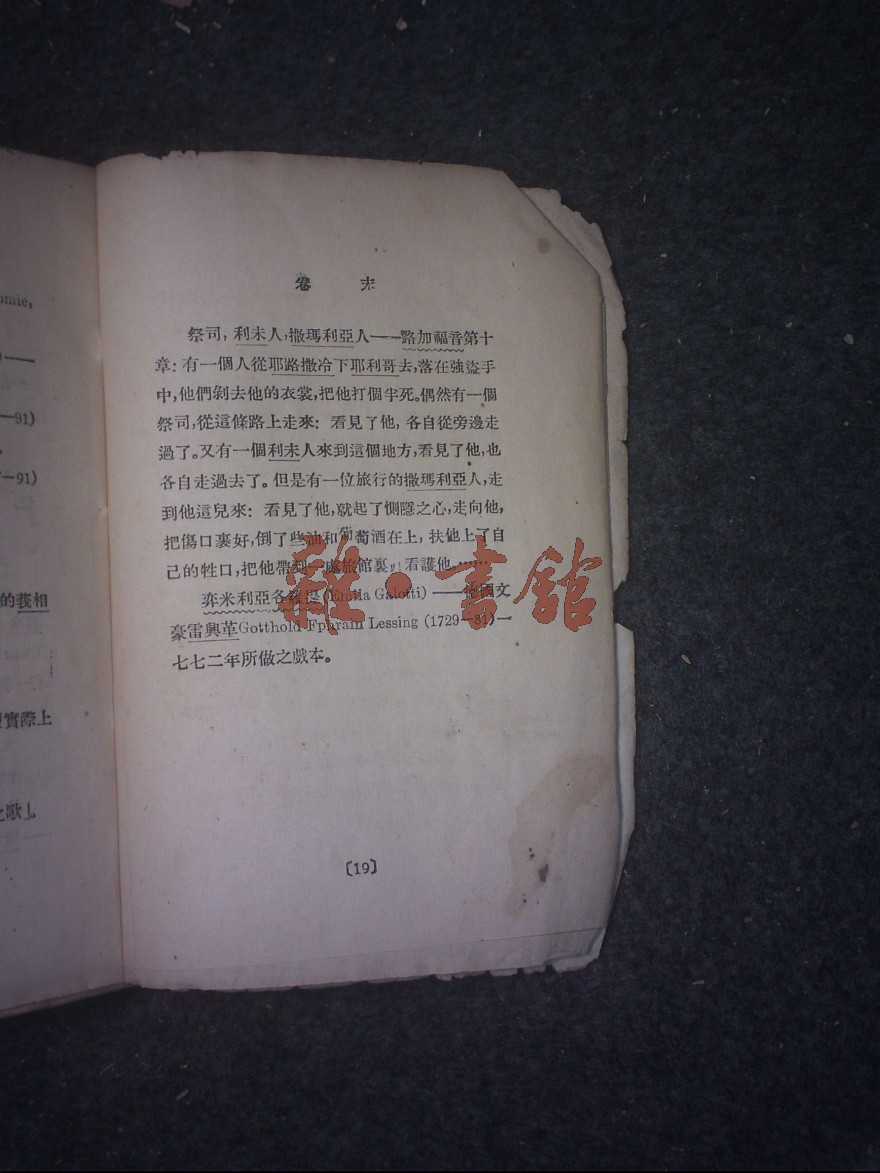 omie,
—91)
—91)
的莪相
實際上
之歌」。
卷 末
祭司，利未人，撒瑪利亞人——路加福音第十
章：有一個人從耶路撒冷下耶利哥去，落在強盜手
中，他們剝去他的衣裳，把他打個半死。偶然有一個
祭司，從這條路上走來：看見了他，各自從旁邊走
過了。又有一個利未人來到這個地方，看見了他，也
各自走過去了。但是有一位旅行的撒瑪利亞人，走
到他這兒來：看見了他，就起了惻隱之心，走向他，
把傷口裹好，倒了些油和葡萄酒在上，扶他上了自
己的牲口，把他帶到一處旅館裏，看護他。……
弈米利亞各羅提 (Emila Galotti) ——德國文
豪雷興革 Gotthold Fphraim Lessing (1729—81) 一
七七二年所做之戲本。
〔19〕
雜·書館